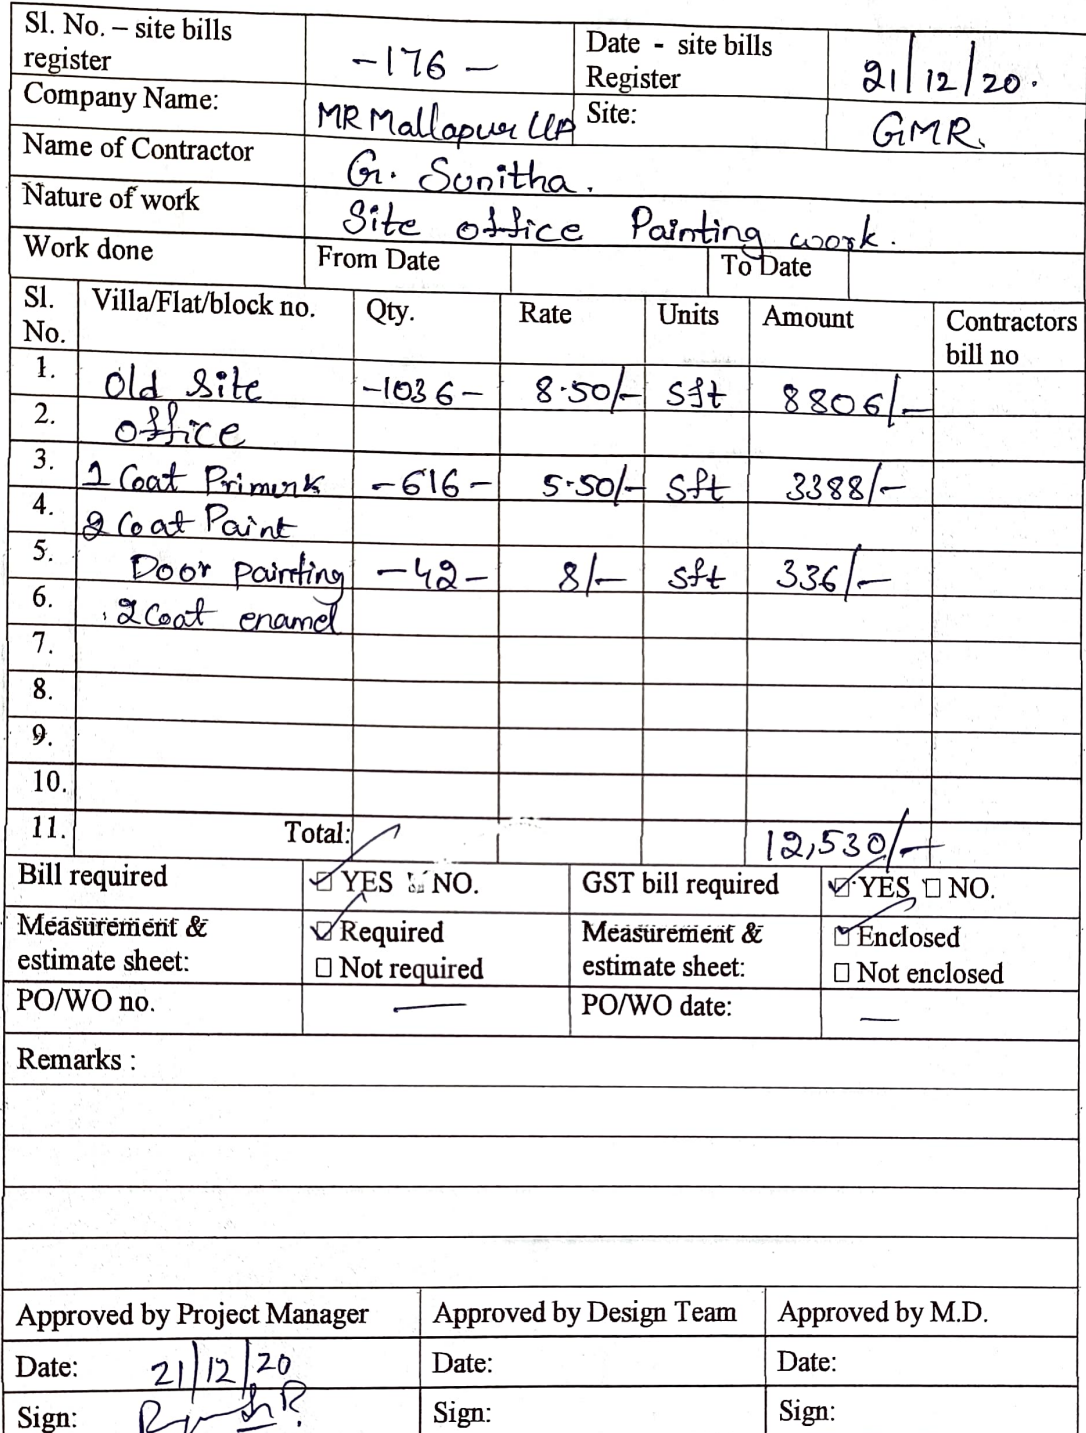 Sl. No. – site bills register -176- Date - site bills Register 21/12/20.
Company Name: MR Mallapur LLP Site: GMR.
Name of Contractor G. Sunitha.
Nature of work Site office Painting work.
Work done From Date To Date
Sl. No. Villa/Flat/block no. Qty. Rate Units Amount Contractors bill no
1. Old Site -1036- 8.50/- Sft 8806/-
2. office
3. 1 Coat Primer -616- 5.50/- Sft 3388/-
4. 2 Coat Paint
5. Door painting -42- 8/- Sft 336/-
6. 2 Coat enamel
7.
8.
9.
10.
11. Total: 12,530/-
Bill required ☑ YES ☐ NO. GST bill required ☑ YES ☐ NO.
Measurement & estimate sheet: ☑ Required ☐ Not required Measurement & estimate sheet: ☑ Enclosed ☐ Not enclosed
PO/WO no. — PO/WO date: —
Remarks :
Approved by Project Manager Approved by Design Team Approved by M.D.
Date: 21/12/20 Date: Date:
Sign: Sign: Sign: